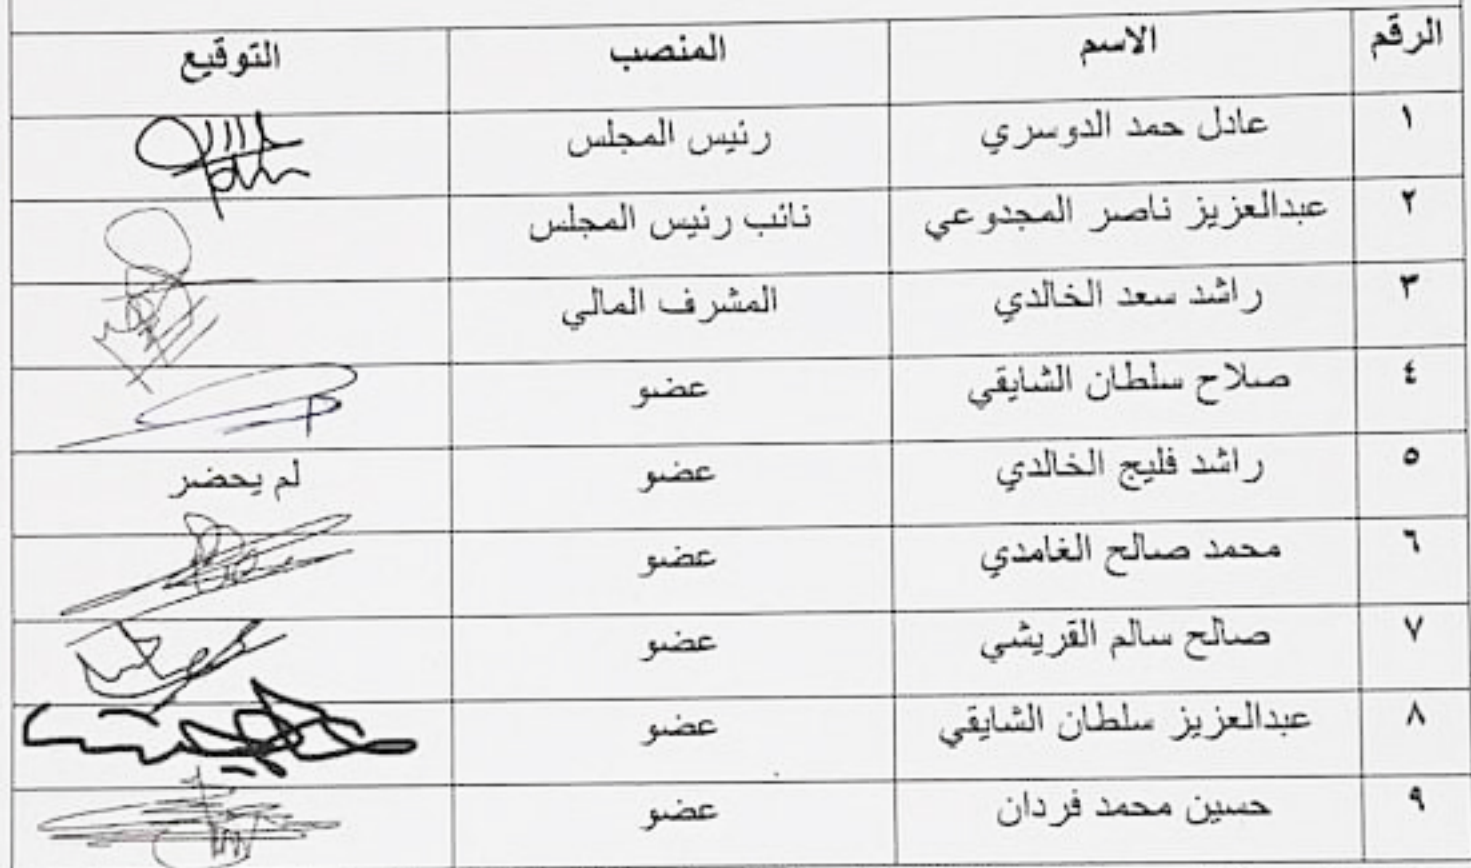 الرقم الاسم المنصب التوقيع
١ عادل حمد الدوسري رئيس المجلس
٢ عبدالعزيز ناصر المجدوعي نائب رئيس المجلس
٣ راشد سعد الخالدي المشرف المالي
٤ صلاح سلطان الشايقي عضو
٥ راشد فليج الخالدي عضو لم يحضر
٦ محمد صالح الغامدي عضو
٧ صالح سالم القريشي عضو
٨ عبدالعزيز سلطان الشايقي عضو
٩ حسين محمد فردان عضو